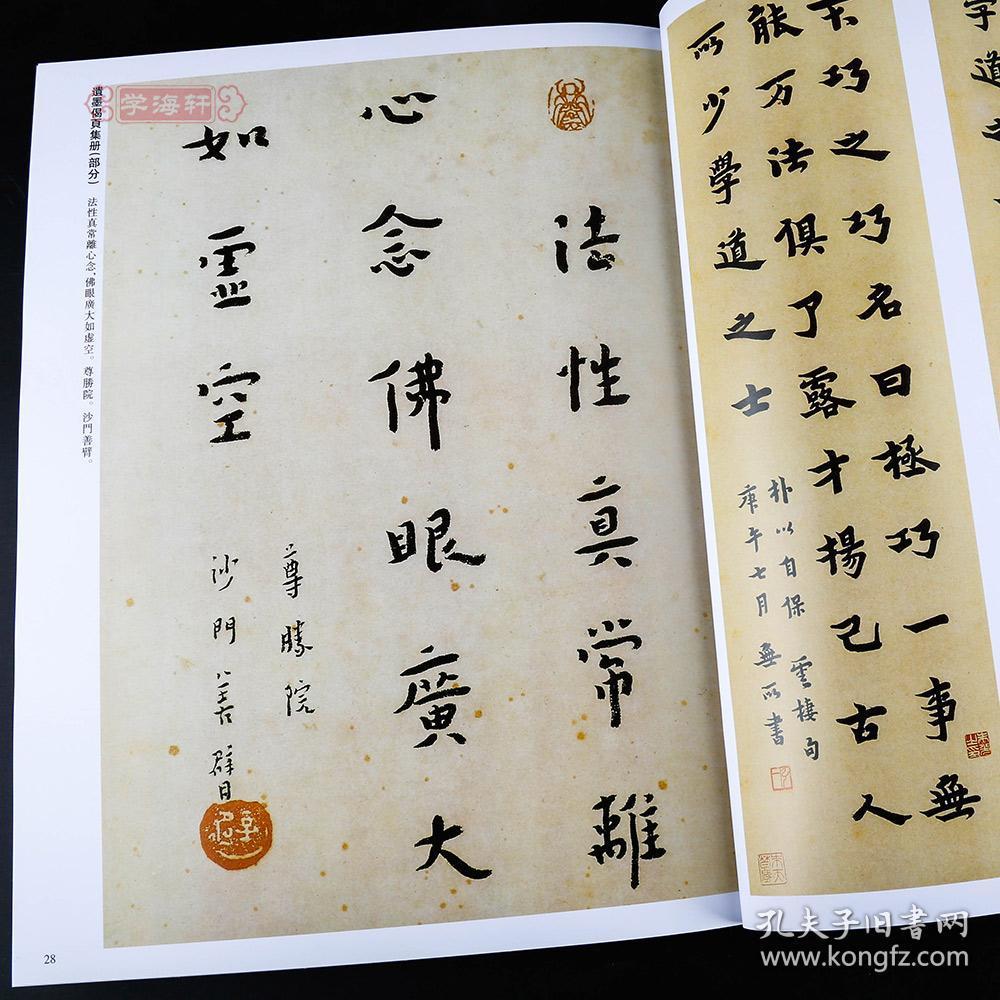 法性真常離
心念佛眼廣大
如虛空
尊勝院
沙門善臂
遺墨偈頁集册(部分) 法性真常離心念、佛眼廣大如虚空。尊勝院。沙門善臂。
学海轩
28
大巧之巧名曰極巧一事無
能万法俱了露才揚己古人
所少學道之士
朴以自保 雲棲句
庚午七月 無所書
孔夫子旧书网
www.kongfz.com